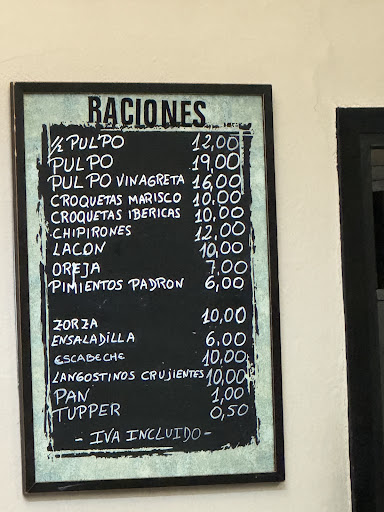 RACIONES
½ PULPO 12,00
PULPO 19,00
PULPO VINAGRETA 16,00
CROQUETAS MARISCO 10,00
CROQUETAS IBERICAS 10,00
CHIPIRONES 12,00
LACON 10,00
OREJA 7,00
PIMIENTOS PADRON 6,00
ZORZA 10,00
ENSALADILLA 6,00
ESCABECHE 10,00
LANGOSTINOS CRUJIENTES 10,00
PAN 1,00
TUPPER 0,50
- IVA INCLUIDO -